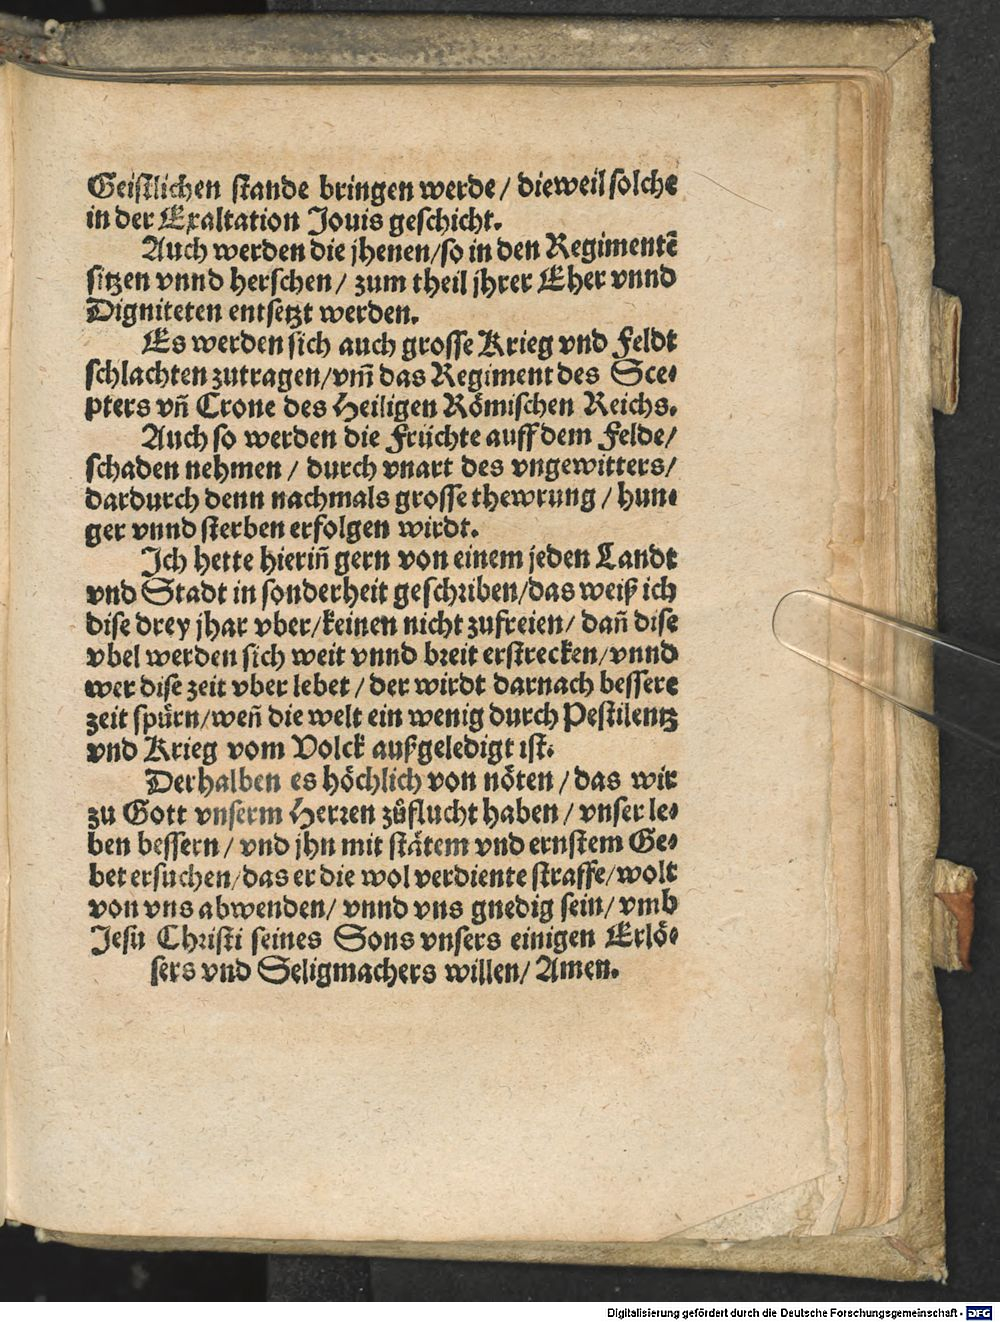 Geistlichen stande bringen werde/ dieweil solche
in der Exaltation Jouis geschicht.
Auch werden die jhenen/so in den Regimentẽ
sitzen vnnd herschen/ zum theil jhrer Eher vnnd
Digniteten entsetzt werden.
Es werden sich auch grosse Krieg vnd Feldt
schlachten zutragen/vm̃ das Regiment des Sce⸗
pters vñ Crone des Heiligen Römischen Reichs.
Auch so werden die Früchte auff dem Felde/
schaden nehmen/ durch vnart des vngewitters/
dardurch denn nachmals grosse thewrung/ hun⸗
ger vnnd sterben erfolgen wirdt.
Ich hette hieriñ gern von einem jeden Landt
vnd Stadt in sonderheit geschriben/das weiß ich
dise drey jhar vber/keinen nicht zufreien/ dañ dise
vbel werden sich weit vnnd breit erstrecken/vnnd
wer dise zeit vber lebet/ der wirdt darnach bessere
zeit spürn/weñ die welt ein wenig durch Pestilentz
vnd Krieg vom Volck außgeledigt ist.
Derhalben es höchlich von nöten/ das wir
zu Gott vnserm Herren zůflucht haben/ vnser le⸗
ben bessern/ vnd jhn mit stätem vnd ernstem Ge⸗
bet ersuchen/das er die wol verdiente straffe/wolt
von vns abwenden/ vnnd vns gnedig sein/ vmb
Jesu Christi seines Sons vnsers einigen Erlö⸗
sers vnd Seligmachers willen/ Amen.
Digitalisierung gefördert durch die Deutsche Forschungsgemeinschaft - DFG